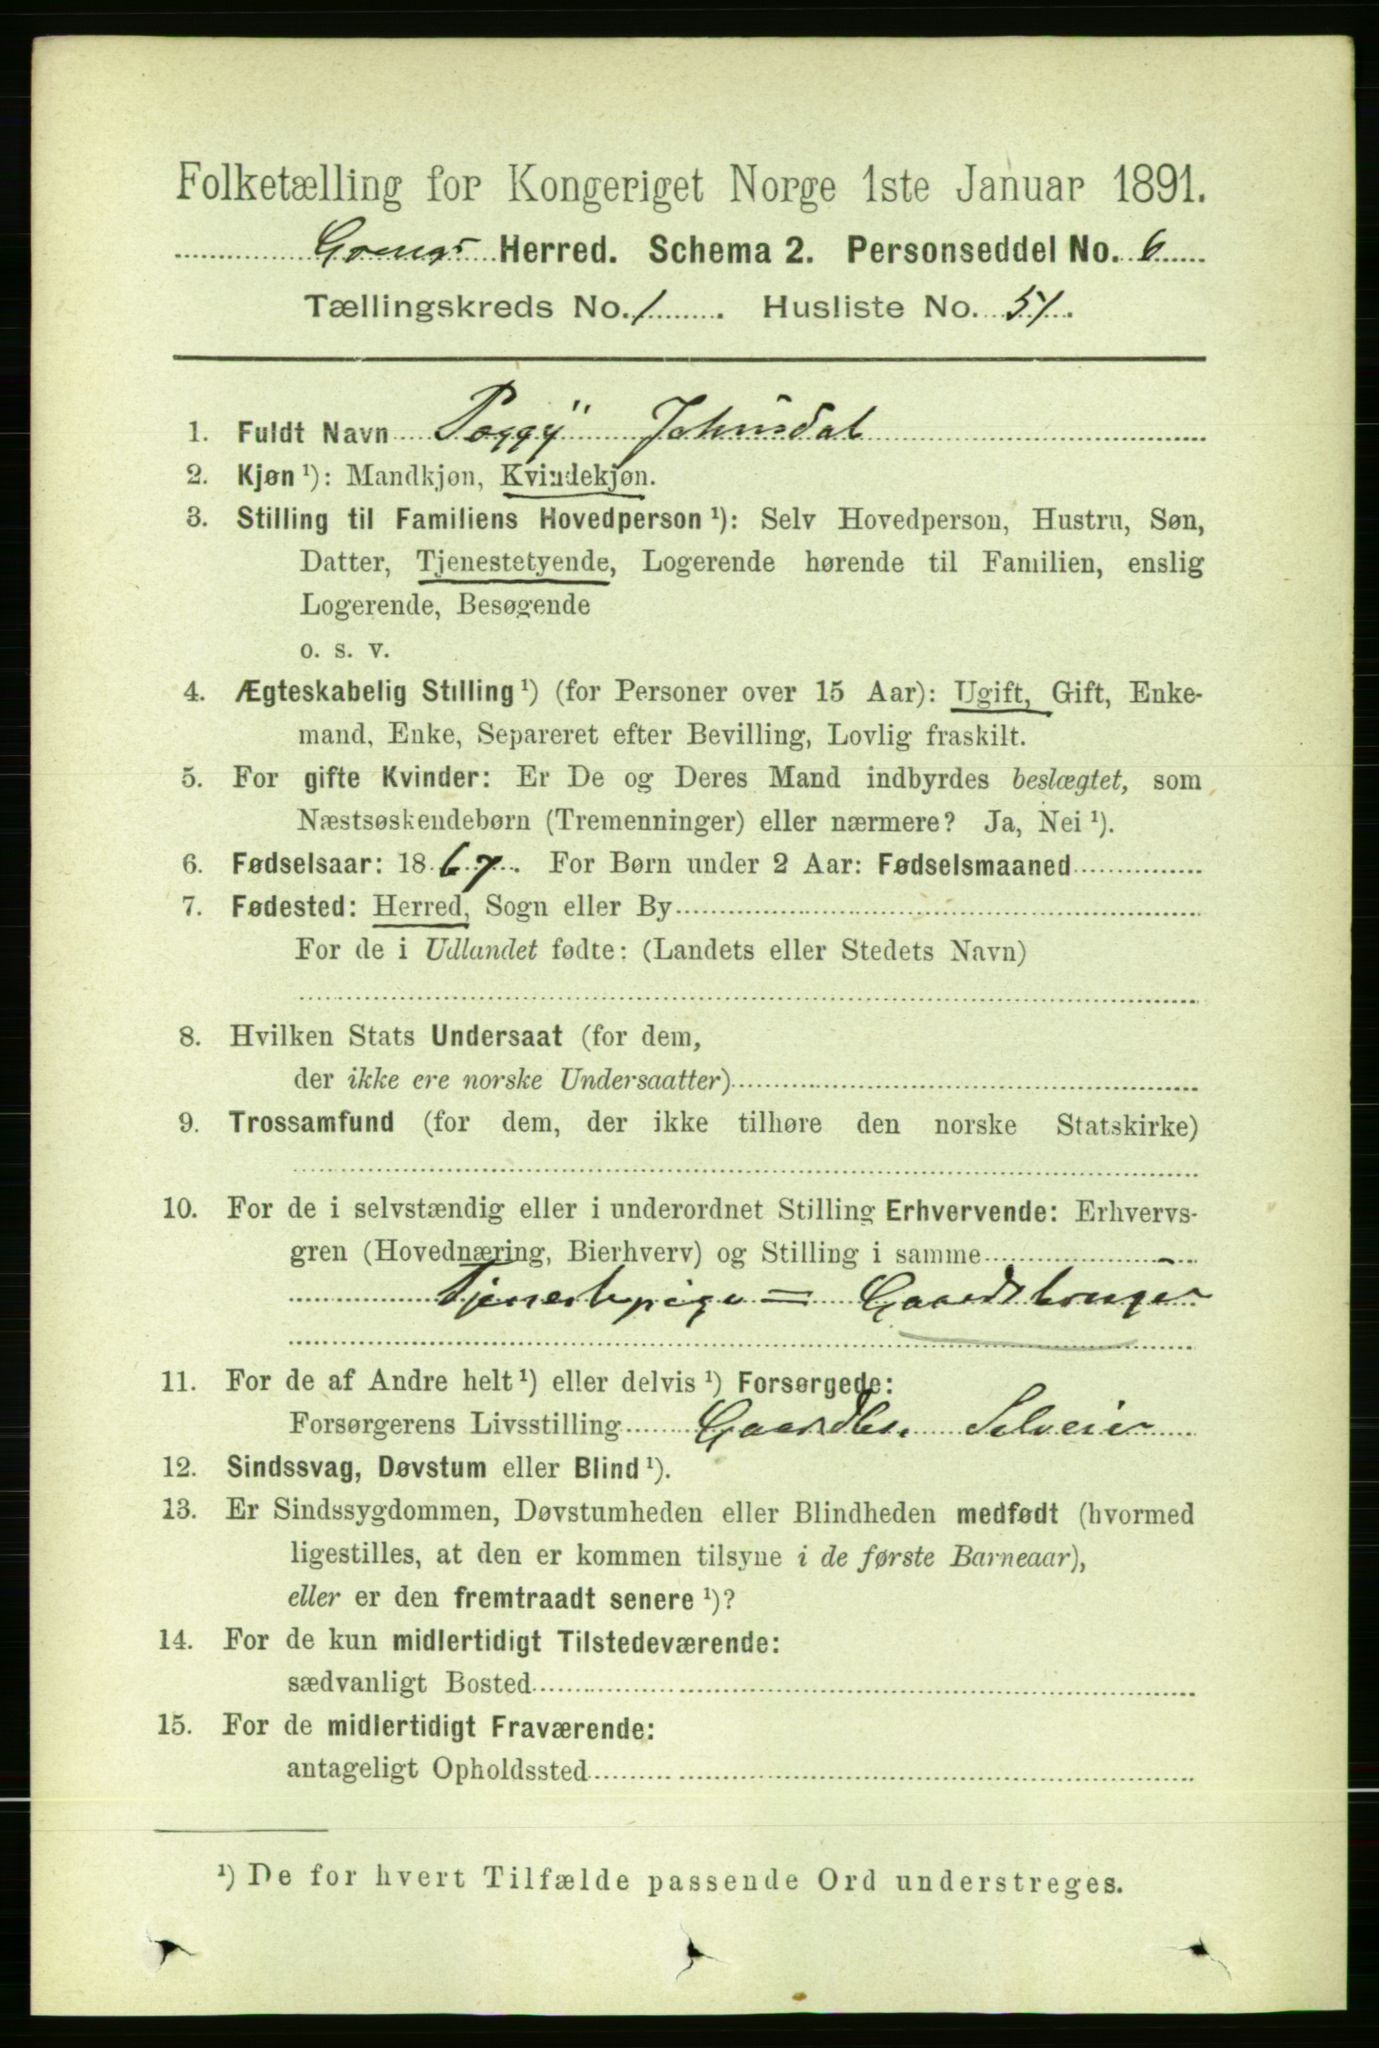 Folketælling for Kongeriget Norge 1ste Januar 1891.
Herred. Schema 2. Personseddel No. 6
Tællingskreds No. 1. Husliste No. 51.
1. Fuldt Navn Peggy Johnsdal
2. Kjøn ¹): Mandkjøn, Kvindekjøn.
3. Stilling til Familiens Hovedperson ¹): Selv Hovedperson, Hustru, Søn,
Datter, Tjenestetyende, Logerende hørende til Familien, enslig
Logerende, Besøgende
o. s. v.
4. Ægteskabelig Stilling ¹) (for Personer over 15 Aar): Ugift, Gift, Enke-
mand, Enke, Separeret efter Bevilling, Lovlig fraskilt.
5. For gifte Kvinder: Er De og Deres Mand indbyrdes beslægtet, som
Næstsøskendebørn (Tremenninger) eller nærmere? Ja, Nei ¹).
6. Fødselsaar: 1867. For Børn under 2 Aar: Fødselsmaaned
7. Fødested: Herred, Sogn eller By
For de i Udlandet fødte: (Landets eller Stedets Navn)
8. Hvilken Stats Undersaat (for dem,
der ikke ere norske Undersaatter)
9. Trossamfund (for dem, der ikke tilhøre den norske Statskirke)
10. For de i selvstændig eller i underordnet Stilling Erhvervende: Erhvervs-
gren (Hovednæring, Bierhverv) og Stilling i samme
Tjenestepige = Gaardsbruger
11. For de af Andre helt ¹) eller delvis ¹) Forsørgede:
Forsørgerens Livsstilling Gaardbr. Selveier
12. Sindssvag, Døvstum eller Blind ¹).
13. Er Sindssygdommen, Døvstumheden eller Blindheden medfødt (hvormed
ligestilles, at den er kommen tilsyne i de første Barneaar),
eller er den fremtraadt senere ¹)?
14. For de kun midlertidigt Tilstedeværende:
sædvanligt Bosted
15. For de midlertidigt Fraværende:
antageligt Opholdssted
¹) De for hvert Tilfælde passende Ord understreges.